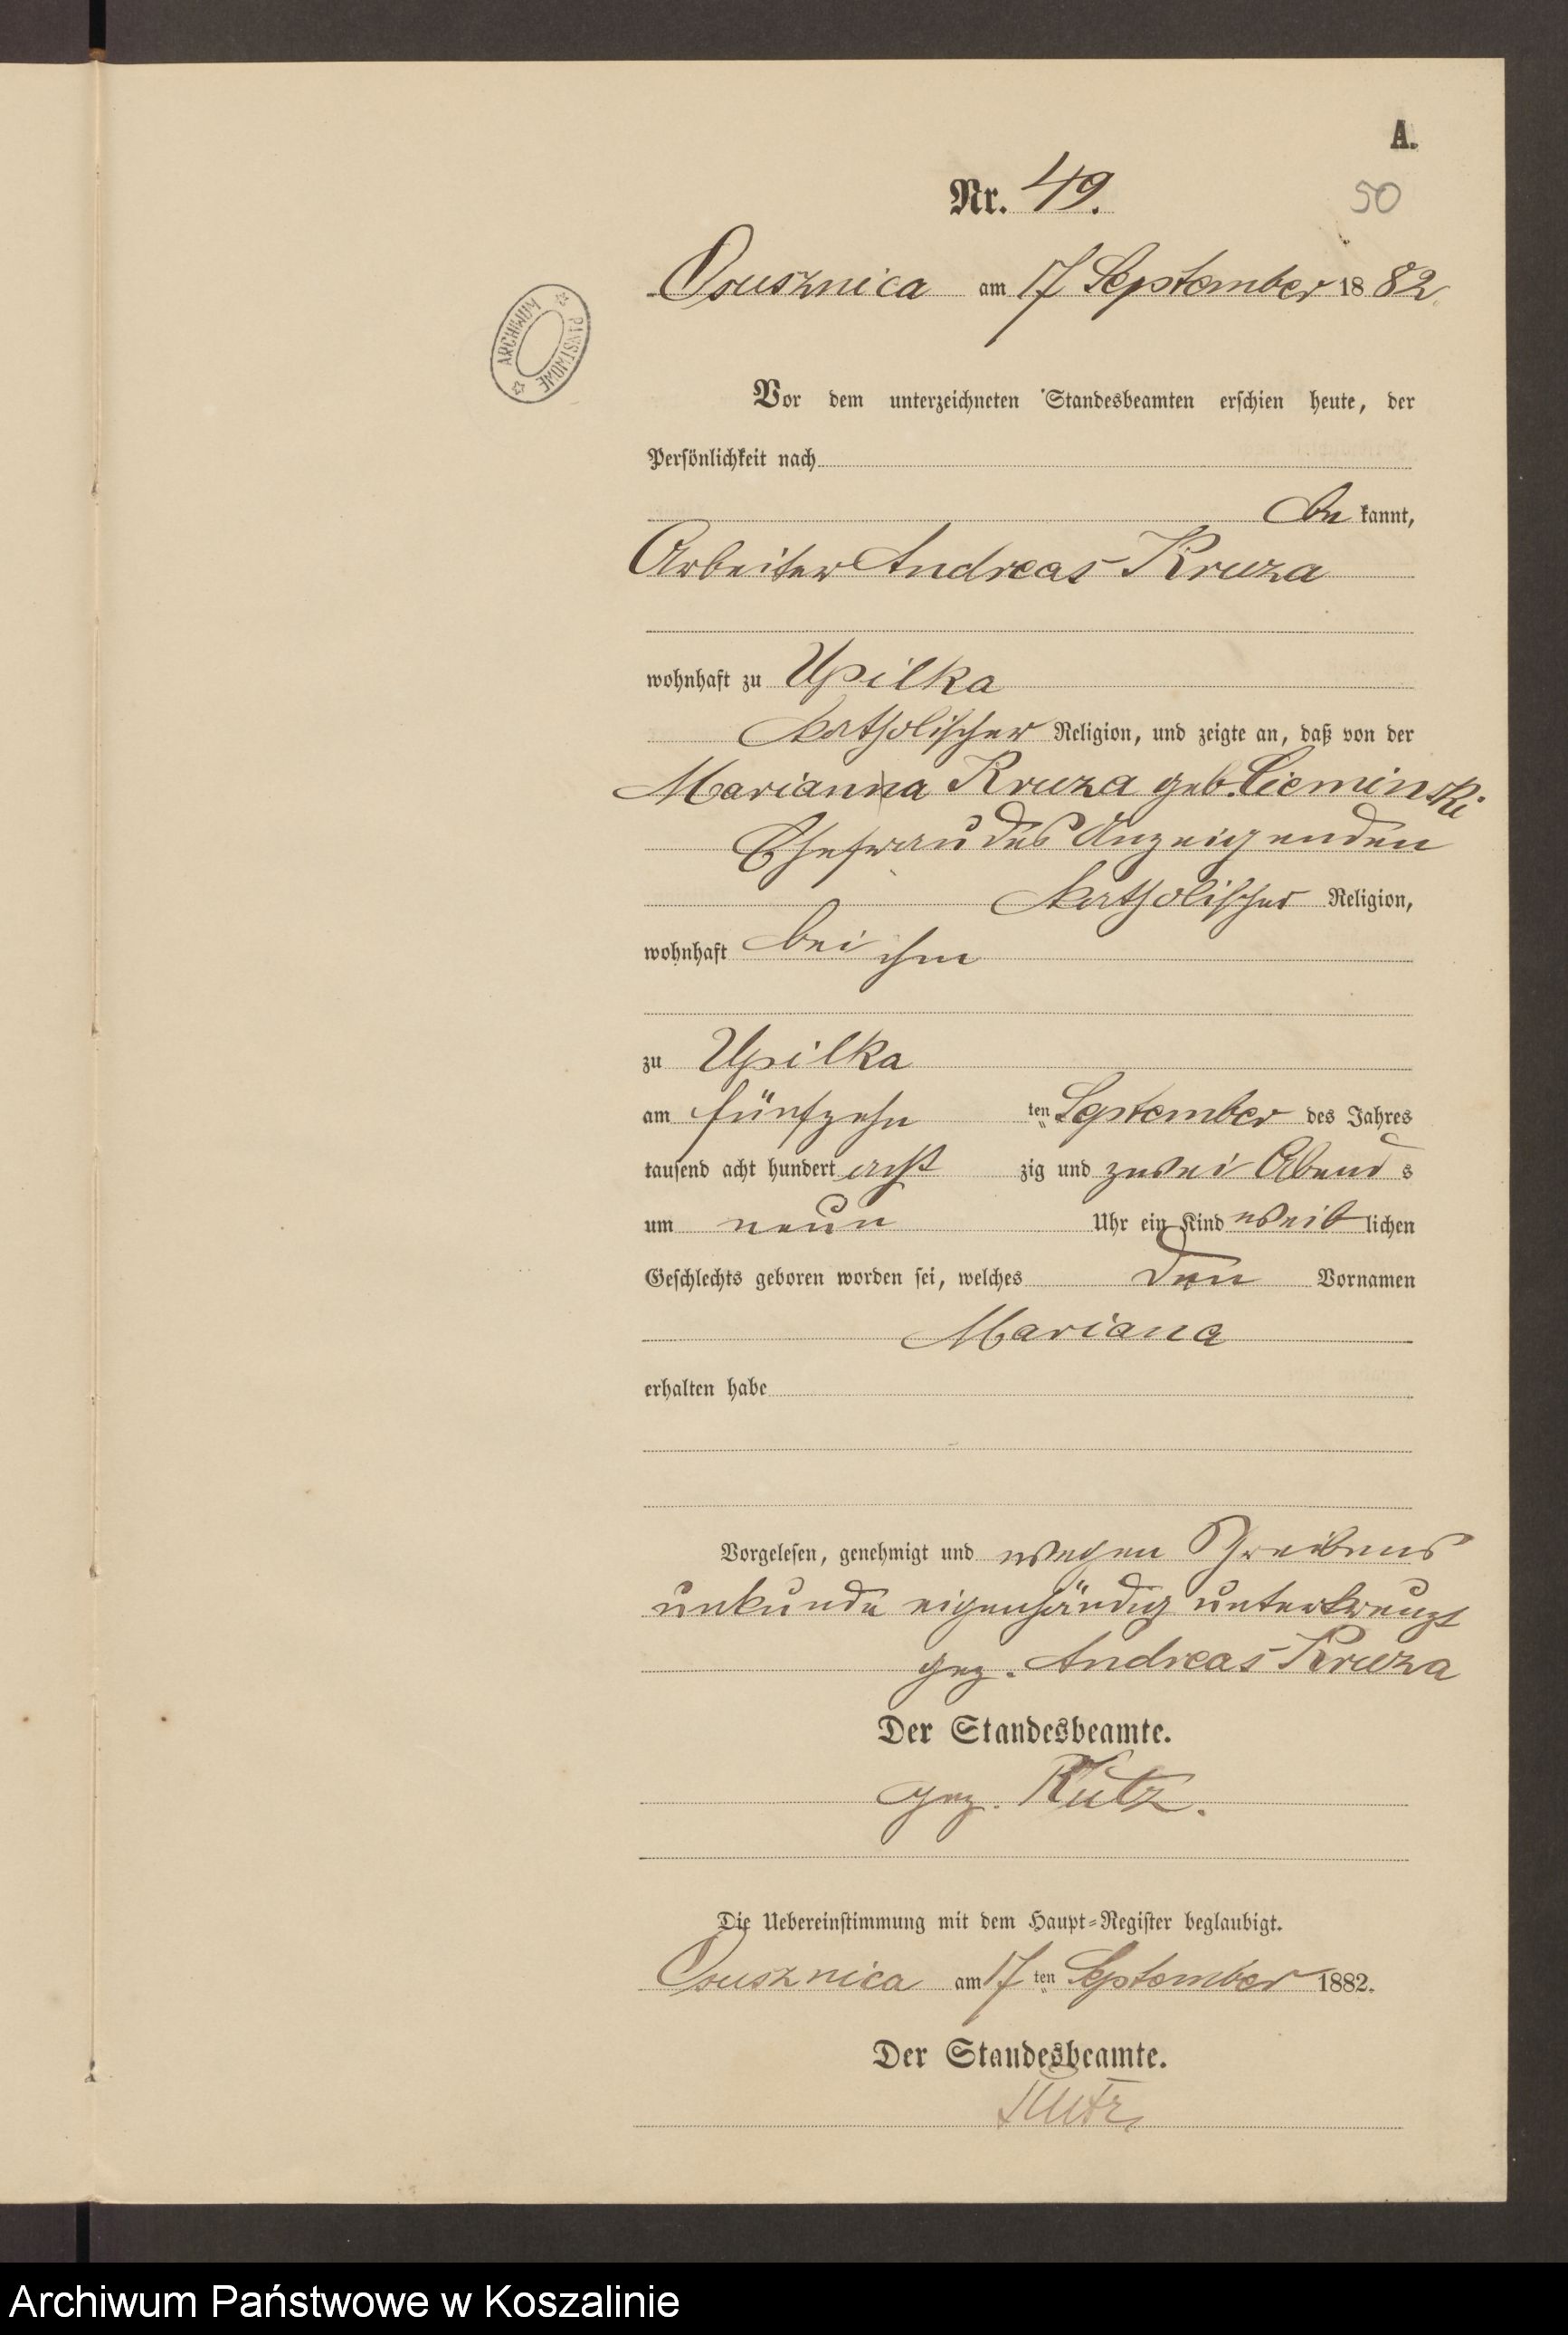 A.
Nr. 49.
50
Osusznica am 17 September 1882.
ARCHIWUM PAŃSTWOWE
Vor dem unterzeichneten Standesbeamten erschien heute, der
Persönlichkeit nach
be kannt,
Arbeiter Andreas Kruza
wohnhaft zu Upilka
katholischer Religion, und zeigte an, daß von der
Marianna Kruza geb. Cieminski
Ehefrau des Anzeigenden
katholischer Religion,
wohnhaft bei ihm
zu Upilka
am fünfzehn ten September des Jahres
tausend acht hundert acht zig und zwei Abend s
um neun Uhr ein Kind weib lichen
Geschlechts geboren worden sei, welches den Vornamen
Mariana
erhalten habe
Vorgelesen, genehmigt und wegen Schreibens
unkunde eigenhändig unterkreuzt
gez. Andreas Kruza
Der Standesbeamte.
gez. Kutz.
Die Uebereinstimmung mit dem Haupt-Register beglaubigt.
Osusznica am 17 ten September 1882.
Der Standesbeamte.
Kutz.
Archiwum Państwowe w Koszalinie